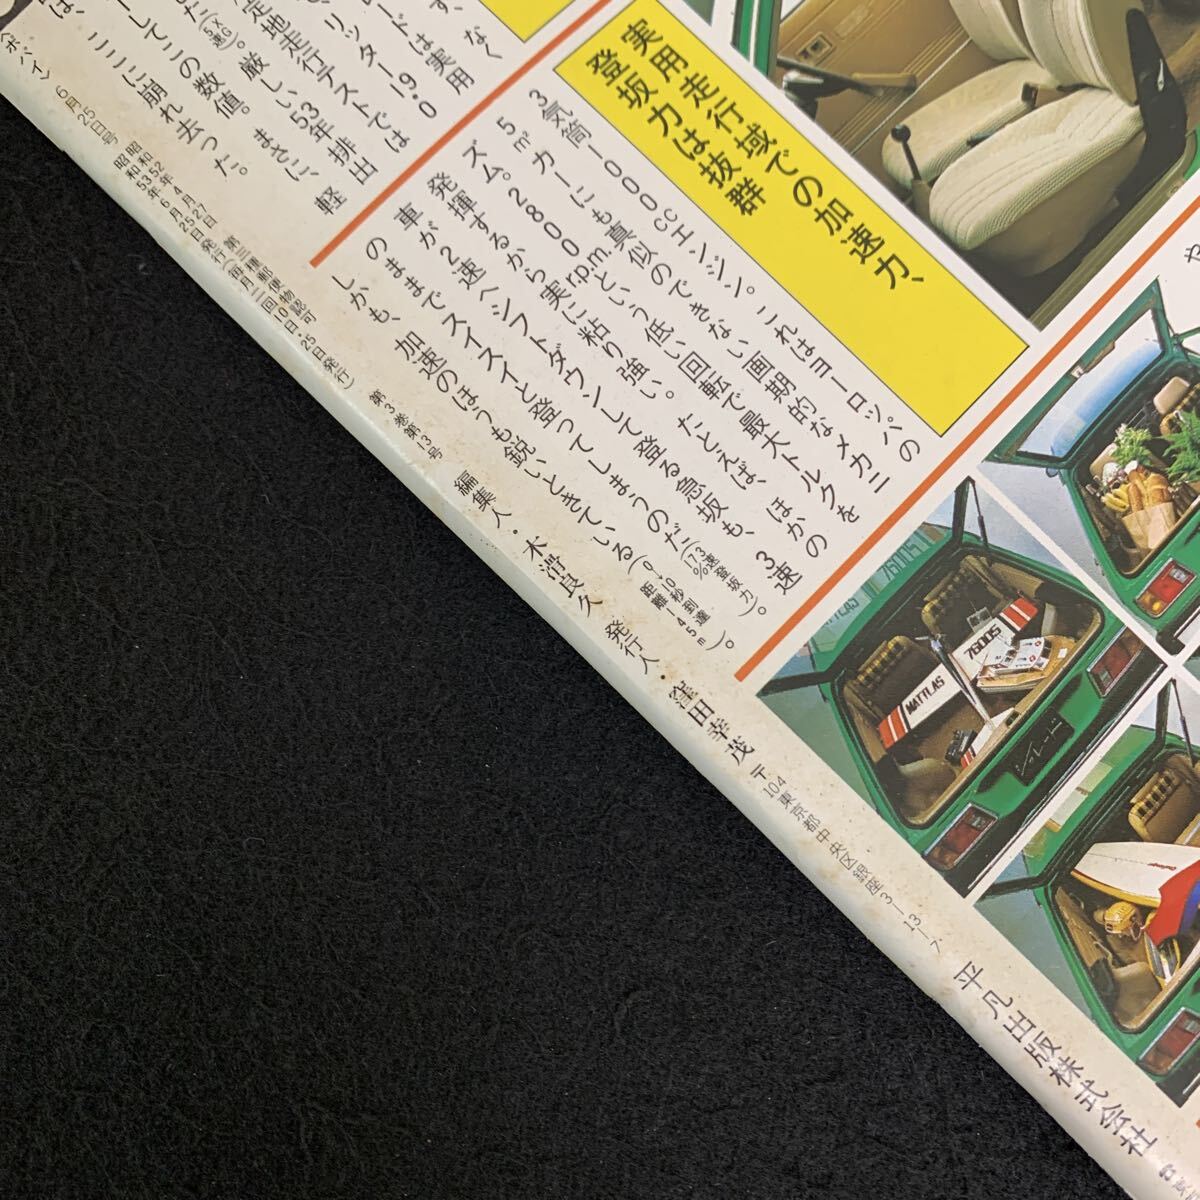 実用走行域での加速力、
登坂力は抜群
3気筒1000ccエンジン。これはヨーロッパの
カーにも真似のできない画期的なメカニ
ズム。2800rpm.という低い回転で最大トルクを
発揮するから実に粘り強い。たとえば、ほかの
車が2速へシフトダウンして登る急坂も、3速の
のままでスイスイと登ってしまうのだ
しかも、加速のほうも鋭いときている
リッター19.0
定地走行テストでは
厳しい53年排出
してこの数値。まさに、
ここに崩れ去った。
軽
6月25日号
昭和52年4月27日第三種郵便物認可
昭和53年6月25日発行(毎月二回10日・25日発行)
第3巻第13号
編集人・木滑良久
発行人
窪田幸茂
〒104東京都中央区銀座3-13-
平凡出版株式会社
MATTLAS
7600S